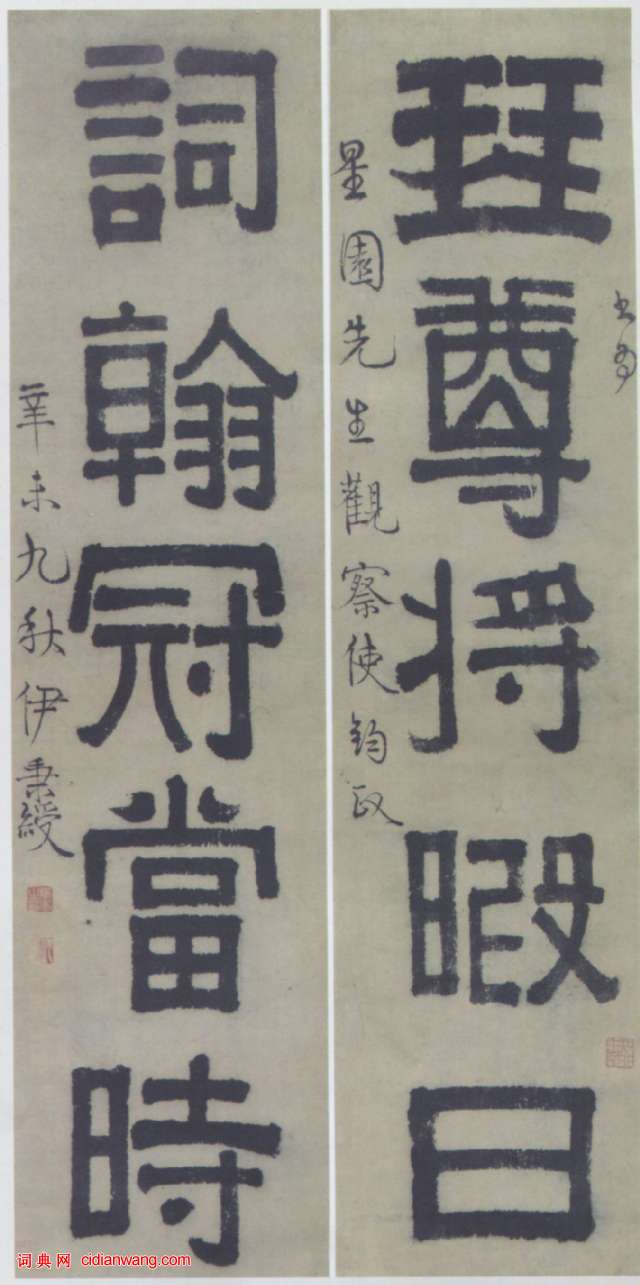 書為
琴尊将暇日
星園先生觀察使鈞政
詞翰冠當時
辛未九秋伊秉綬
词典网 cidianwang.com